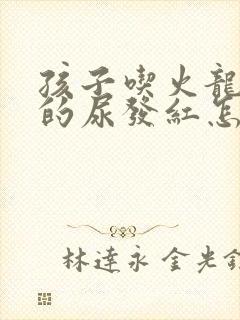 孩子喫火龍
的尿發紅怎
林達永 金光鎬